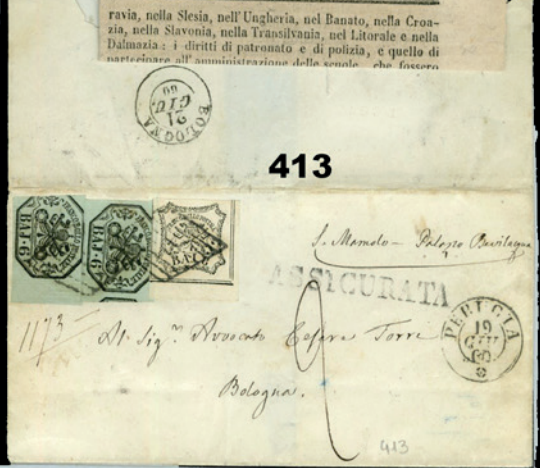 ravia, nella Slesia, nell'Ungheria, nel Banato, nella Croa-
zia, nella Slavonia, nella Transilvania, nel Litorale e nella
Dalmazia: i diritti di patronato e di polizia, e quello di
partecipare all'amministrazione delle scuole, che fossero
BOLOGNA
21
GIU
60
413
BAJ·6
BAJ·6
S. Mamolo - Palazzo Bevilacqua
ASSICURATA
PERUGIA
19
GIU
60
1173
Al Sigr. Avvocato Cesare Torri
Bologna.
413